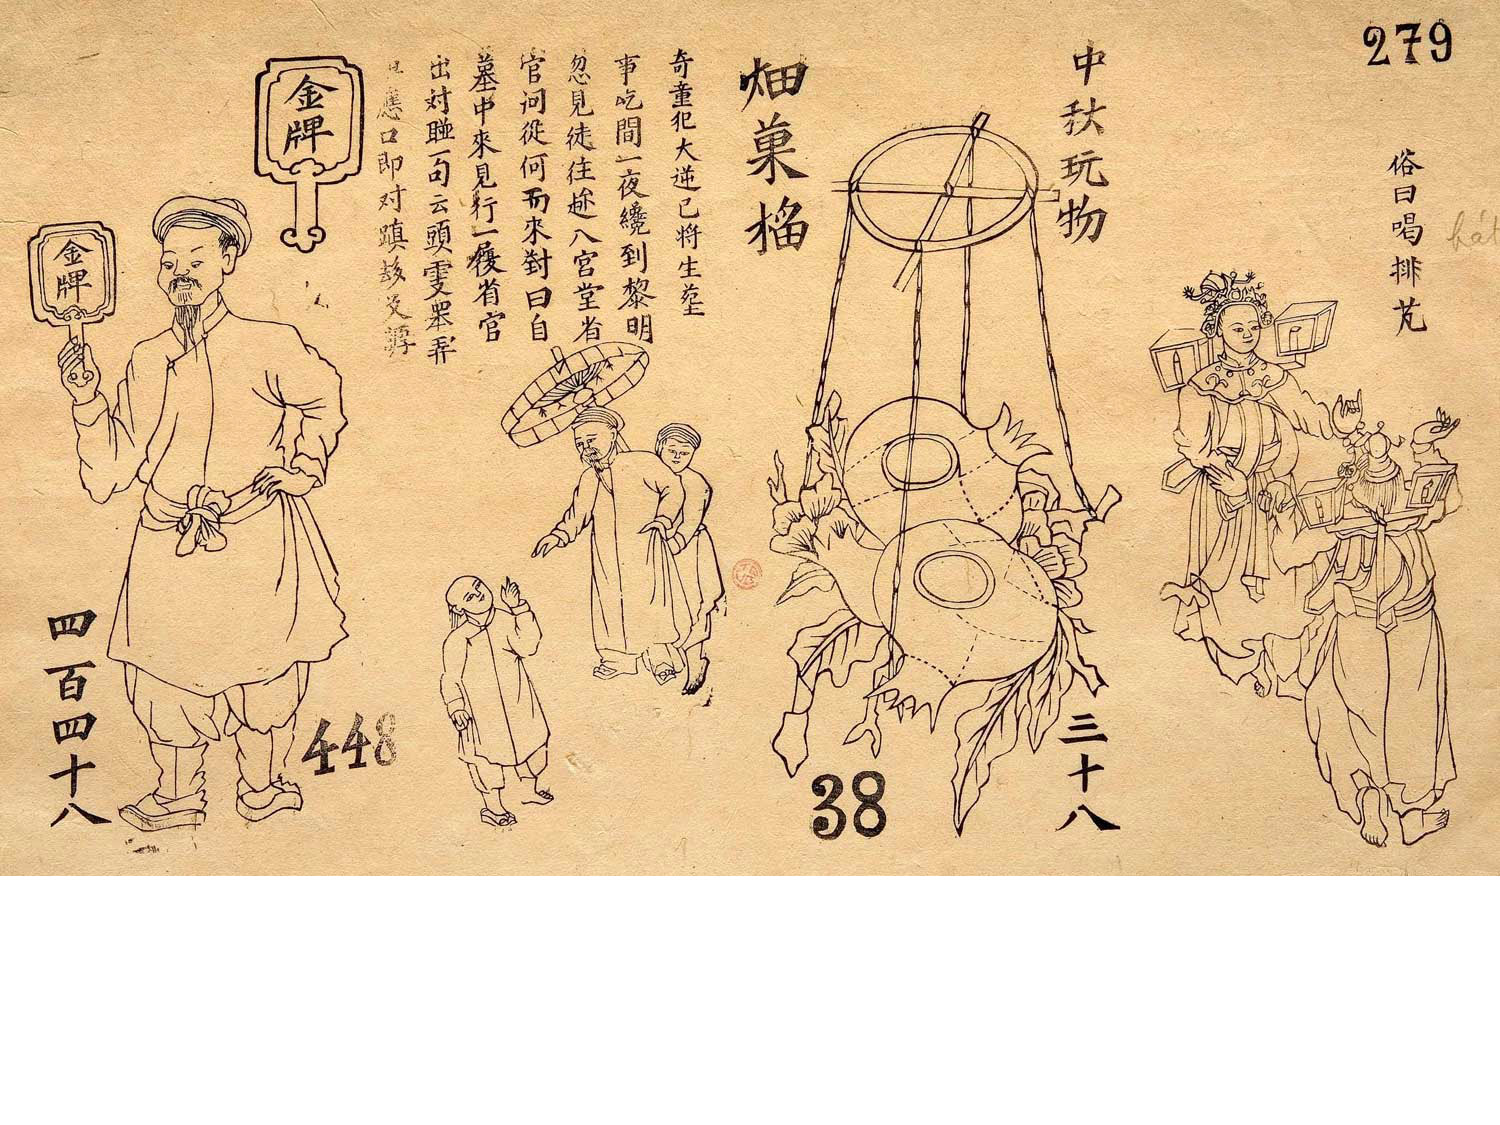 279
俗曰喝排芃
hát
中秋玩物
三十八
畑菓榴
38
奇童犯大逆已将生𦵏
事吃間一夜纔到黎明
忽見徒往趂八宮堂省
官问從何而來對曰自
墓中來見行一復省官
出対聯一句云頭雯
應口即对蹎
金牌
金牌
四百四十八
448